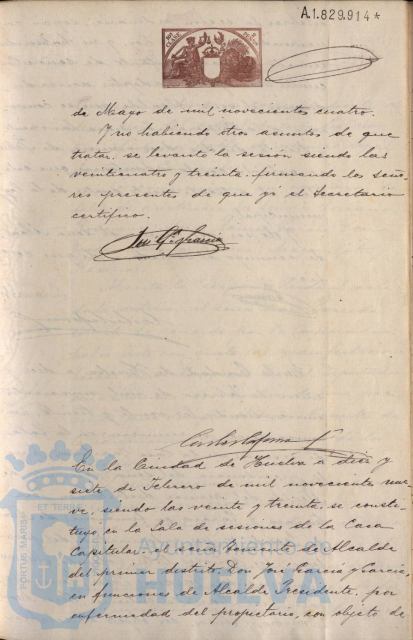 A.1.829.914*
de Mayo de mil novecientos cuatro.
Y no habiendo otros asuntos de que
tratar, se levantó la sesión siendo las
veintiuatro y treinta, firmando los seño-
res presentes de que yo el Secretario
certifico.
En la Ciudad de Huelva á diez y
siete de Febrero de mil novecientos nue-
ve, siendo las veinte y treinta, se consti-
tuyó en la Sala de sesiones de la Casa
Capitular, el señor Teniente de Alcalde
del primer distrito, Don José García y García,
en funciones de Alcalde Presidente, por
enfermedad del propietario, con objeto de
PORTUS MARIS
ET TERRÆ
Ayuntamiento de
HUELVA